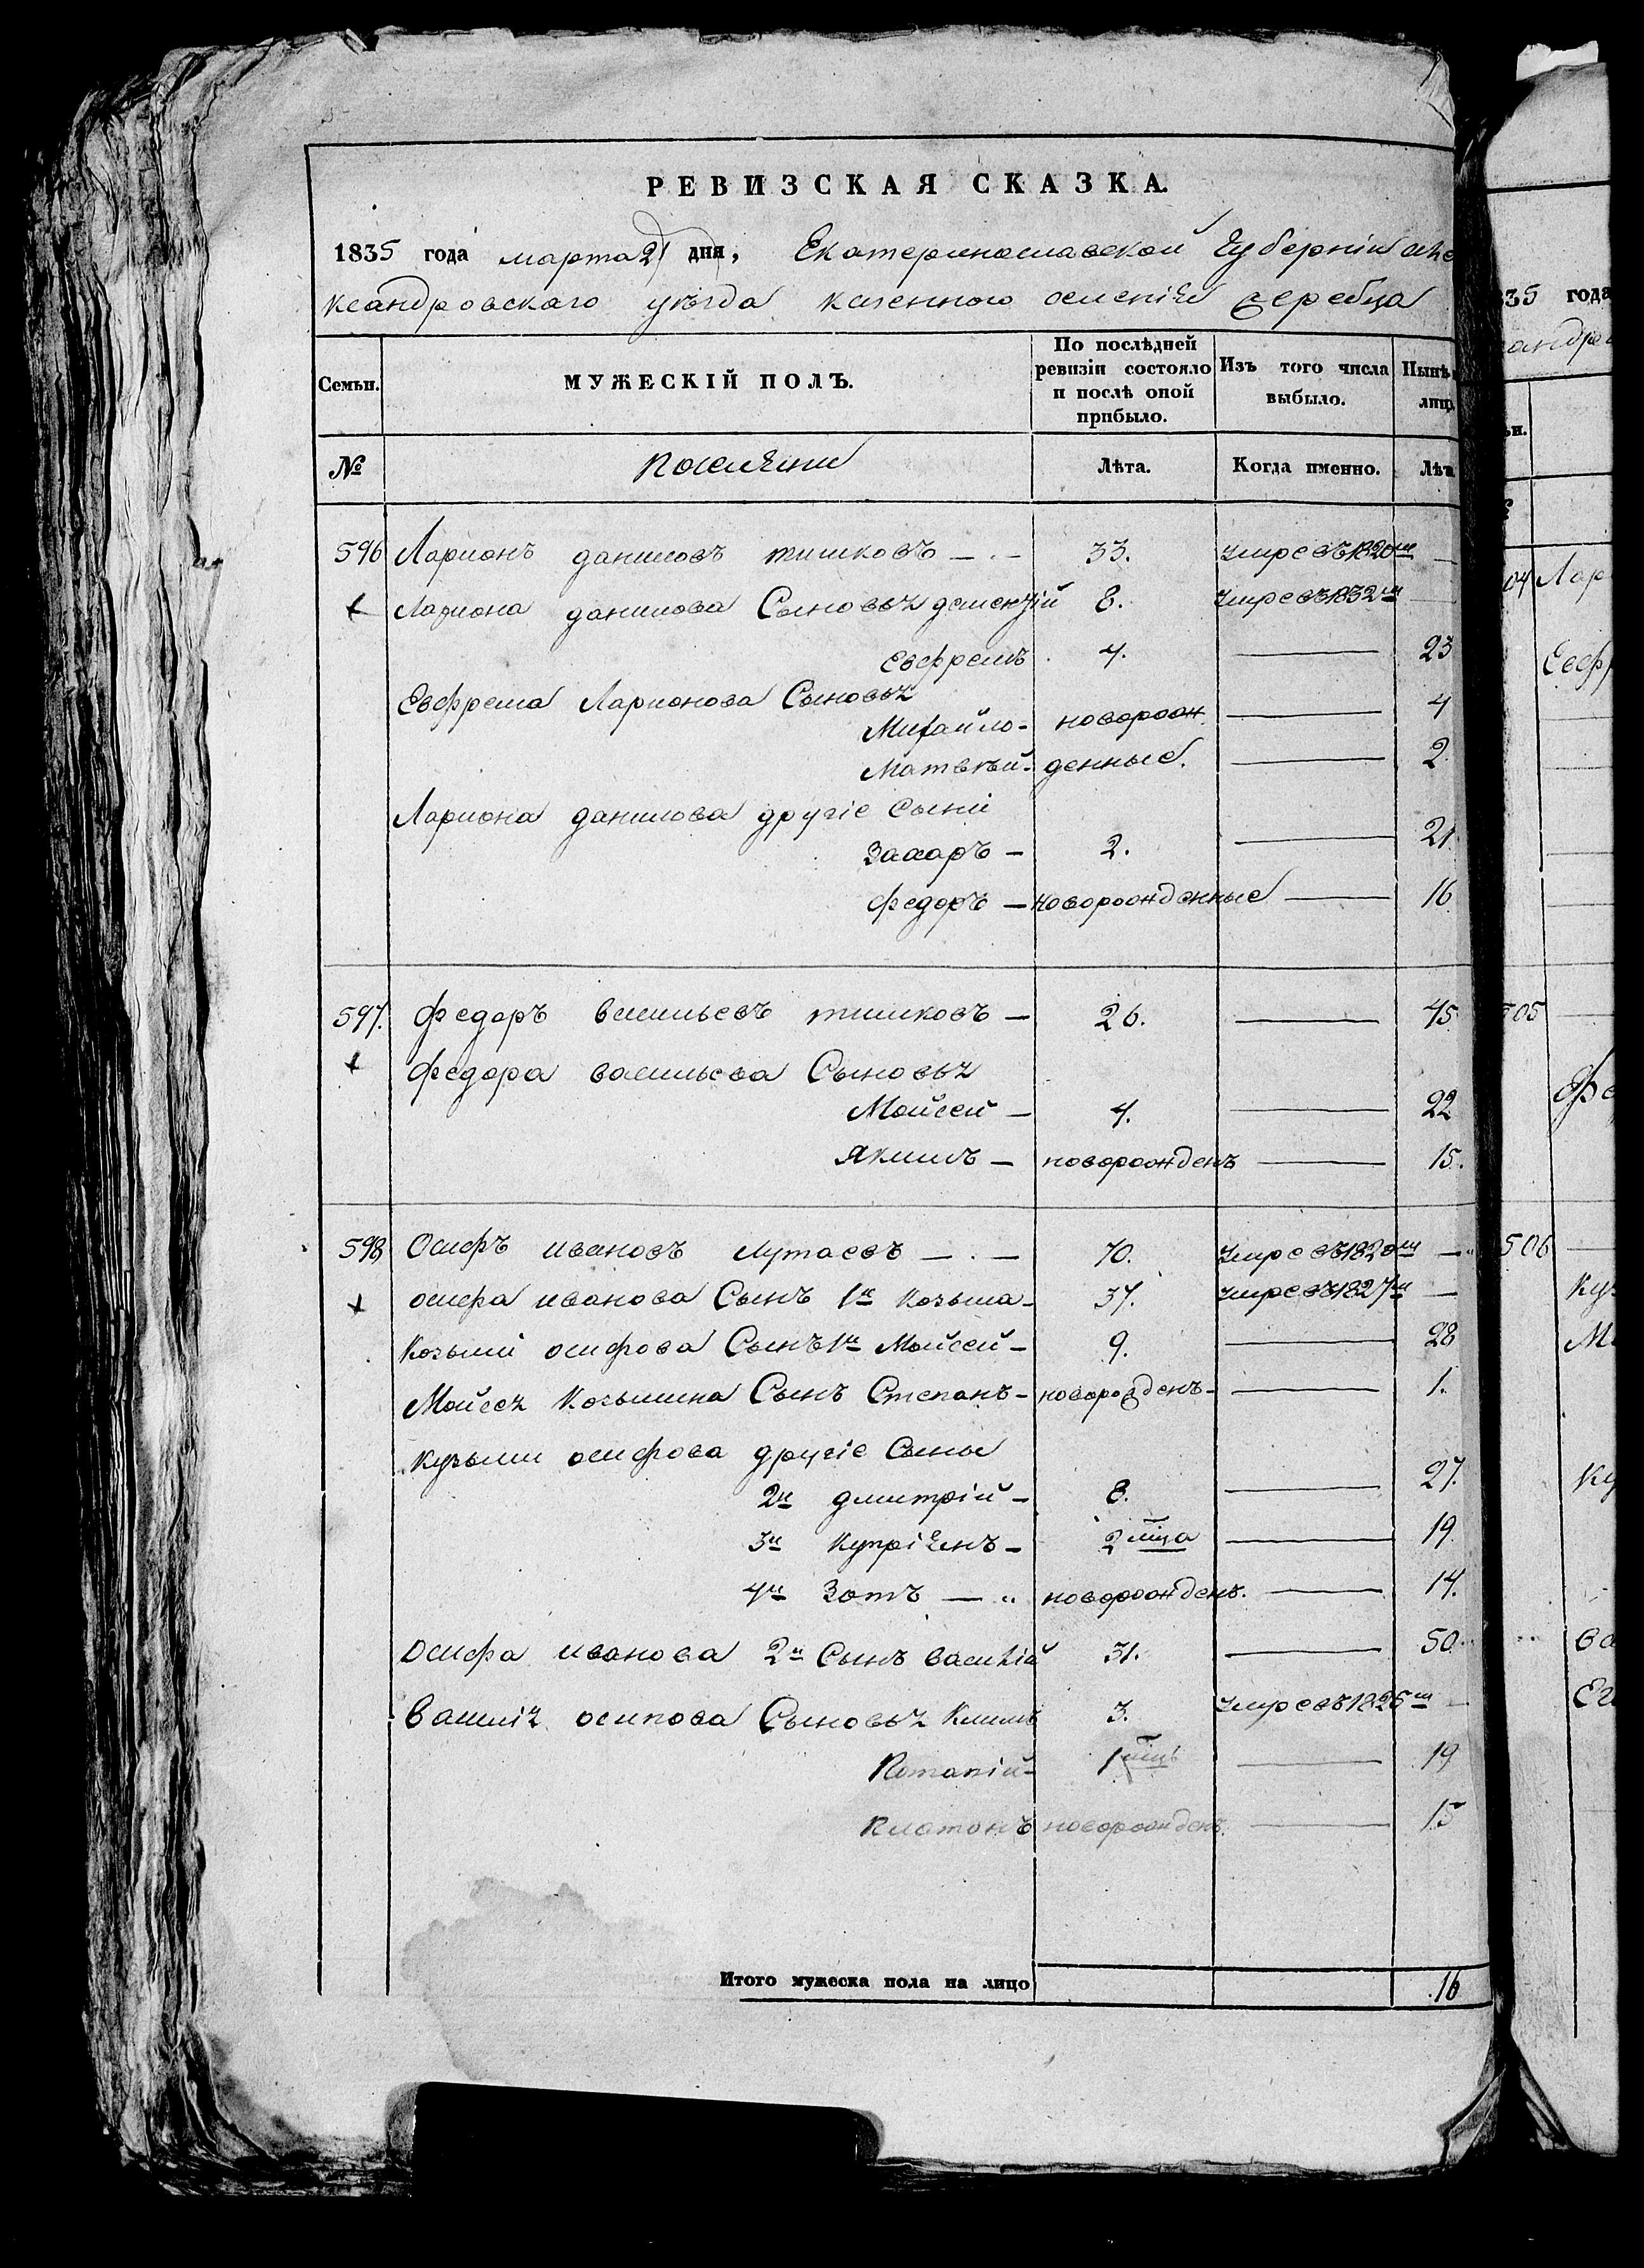 РЕВИЗСКАЯ СКАЗКА.
1835 года марта 21 дня, Екатеринославской Губерніи але
ксандровскаго уѣзда казенного селенія жеребца
Семьи. МУЖЕСКІЙ ПОЛЪ. По послѣдней ревизіи состояло и послѣ оной прибыло. Изъ того числа выбыло. Нынѣ лицо
№ Поселяни Лѣта. Когда именно. Лѣта
596 Ларионъ даниловъ тишковъ — 33. умре въ 1820м —
Лариона данилова Сыновья 8. умре въ 1832м —
Евфремъ 4. — 23
Евфрема Ларионова Сыновья
Михайло - новорож — 4
Матвѣй - денные. — 2
Лариона данилова другіе Сыни
Захаръ — 2. — 21
федоръ — новорожденные — 16
597. федоръ васильевъ тишковъ — 26. — 45
федора васильева Сыновья
Мойсей — 4. — 22
Якимъ — новорожденъ — 15.
598 Осифъ ивановъ лутаевъ — 70. умре въ 1820м —
осифа иванова Сынъ 1й Козьма - 37. умре въ 1827м —
Козьми осифова Сынъ 1й Мойсей - 9. — 28
Мойсея Козьмина Сынъ Степанъ - новорожденъ - — 1.
Кузьми осифова другіе Сыны
2й дмитрій - 8. — 27.
3й Купріянъ - 2 мца — 19
4й Зотъ — новорожденъ. — 14.
осифа иванова 2й Сынъ василій 31. — 50
Василія осипова Сыновья Климъ 3. умре въ 1825м —
Потапій - 1 мць — 19
Платонъ новорожденъ. — 15
Итого мужеска пола на лицо 16
35 года
андро
ьи.
04 Лар
Евф
505
Фе
506
Ку
М
Ку
ва